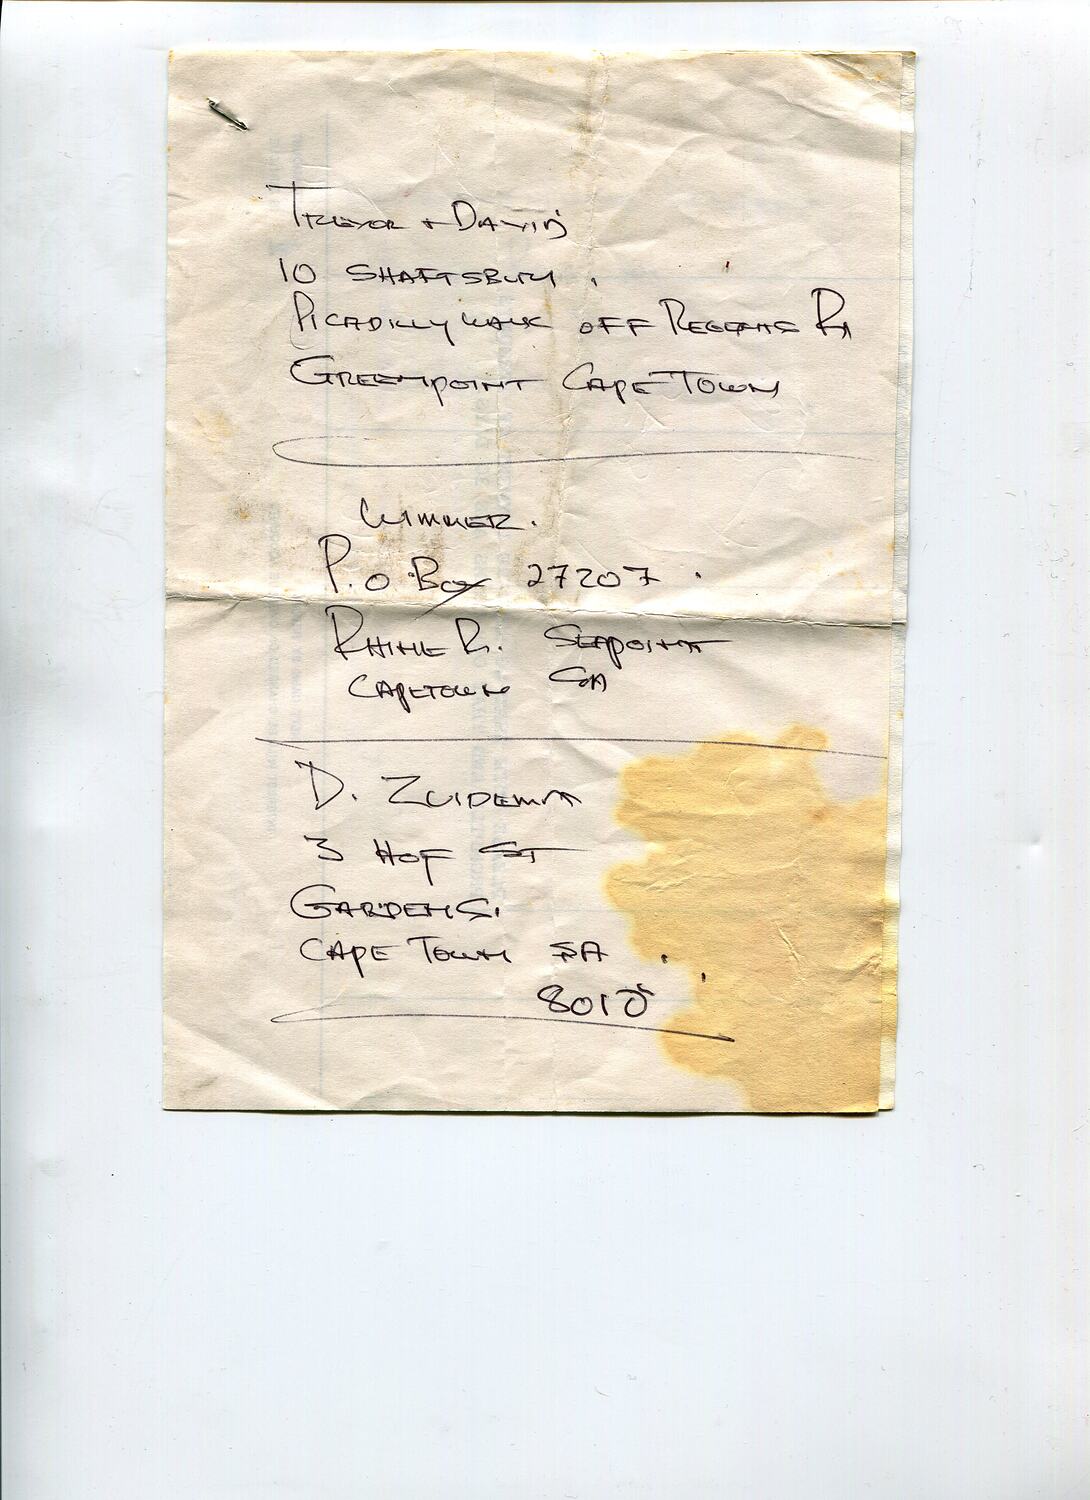 TREVOR + DAVID
10 SHAFTSBURY.
PICADILLY WALK OFF REGENTS Rd
GREENPOINT CAPE TOWN
WIMMER.
P.O Box 27207.
RHINE R. SEAPOINT
CAPETOWN SA
D. ZUIDEMA
3 HOF ST
GARDENS.
CAPE TOWN SA.
8010